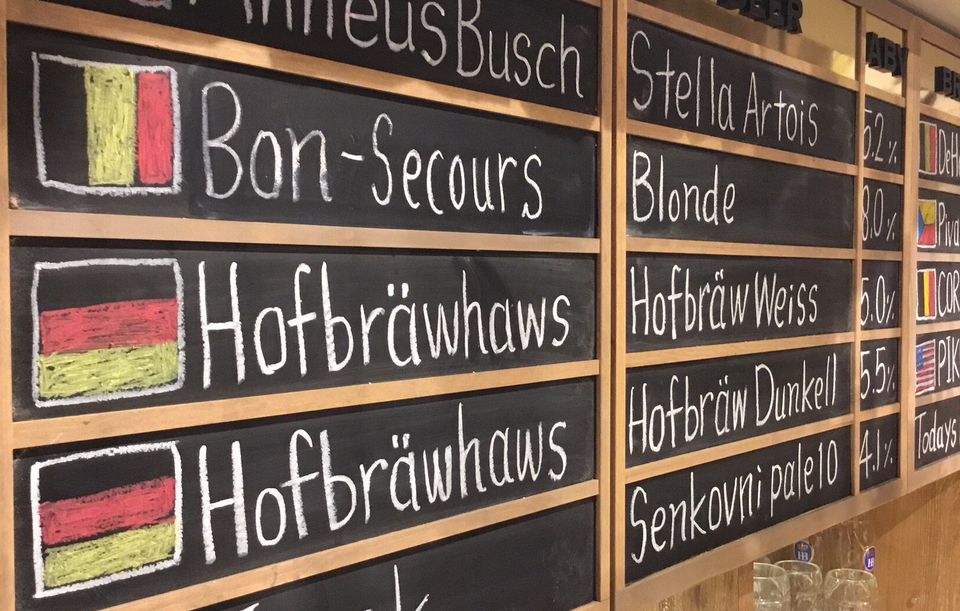 Busch
Stella Artois
5.2%
Bon-Secours
Blonde
8.0%
Hofbräwhaws
Hofbräw Weiss
5.0%
Hofbräwhaws
Hofbräw Dunkell
5.5%
Senkovni pale 10
4.1%
BEER
ABY
COR
PIK
Todays
HB